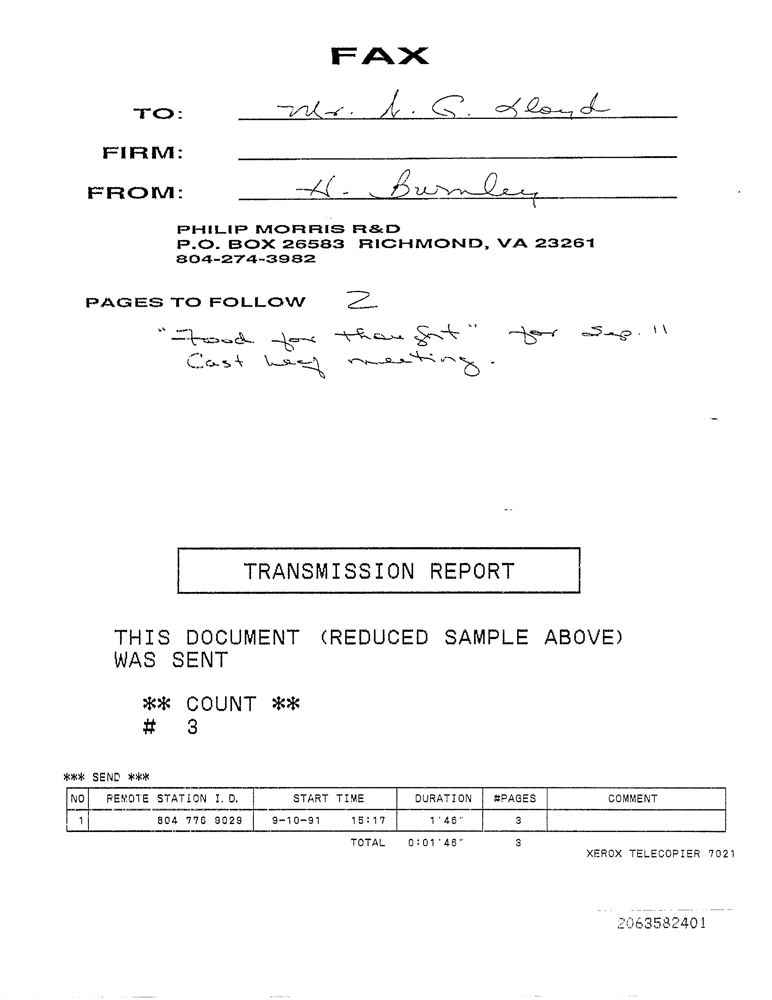 FAX
TO: Mr. N. G. Lloyd
FIRM:
FROM: H. Burnley
PHILIP MORRIS R&D
P.O. BOX 26583 RICHMOND, VA 23261
804-274-3982
PAGES TO FOLLOW 2
"Food for thought" for Sep. 11
Cast leaf meeting.
TRANSMISSION REPORT
THIS DOCUMENT (REDUCED SAMPLE ABOVE)
WAS SENT
** COUNT **
# 3
*** SEND ***
NO REMOTE STATION I.D. START TIME DURATION #PAGES COMMENT
1 804 770 9029 9-10-91 15:17 1'46" 3
TOTAL 0:01'46" 3
XEROX TELECOPIER 7021
2063582401